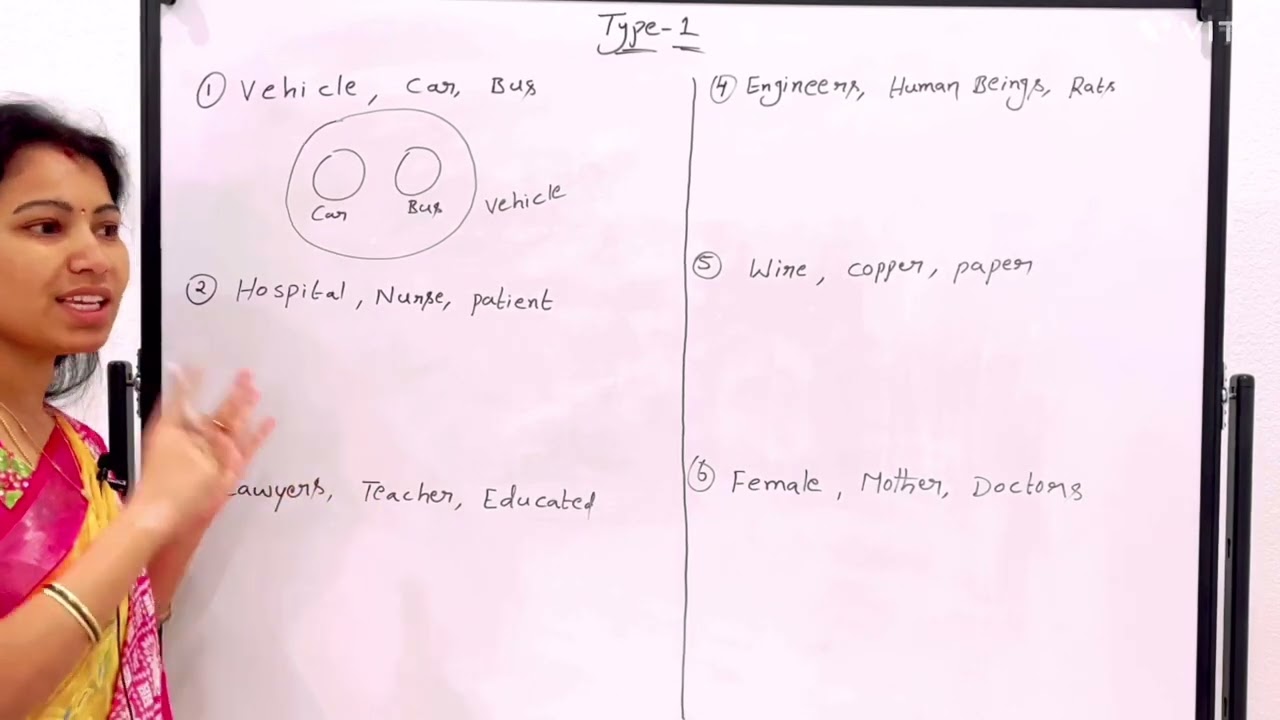 Type-1
① Vehicle, Car, Bus
Car Bus vehicle
② Hospital, Nurse, patient
Lawyers, Teacher, Educated
④ Engineers, Human Beings, Rats
⑤ Wire, copper, paper
⑥ Female, Mother, Doctors